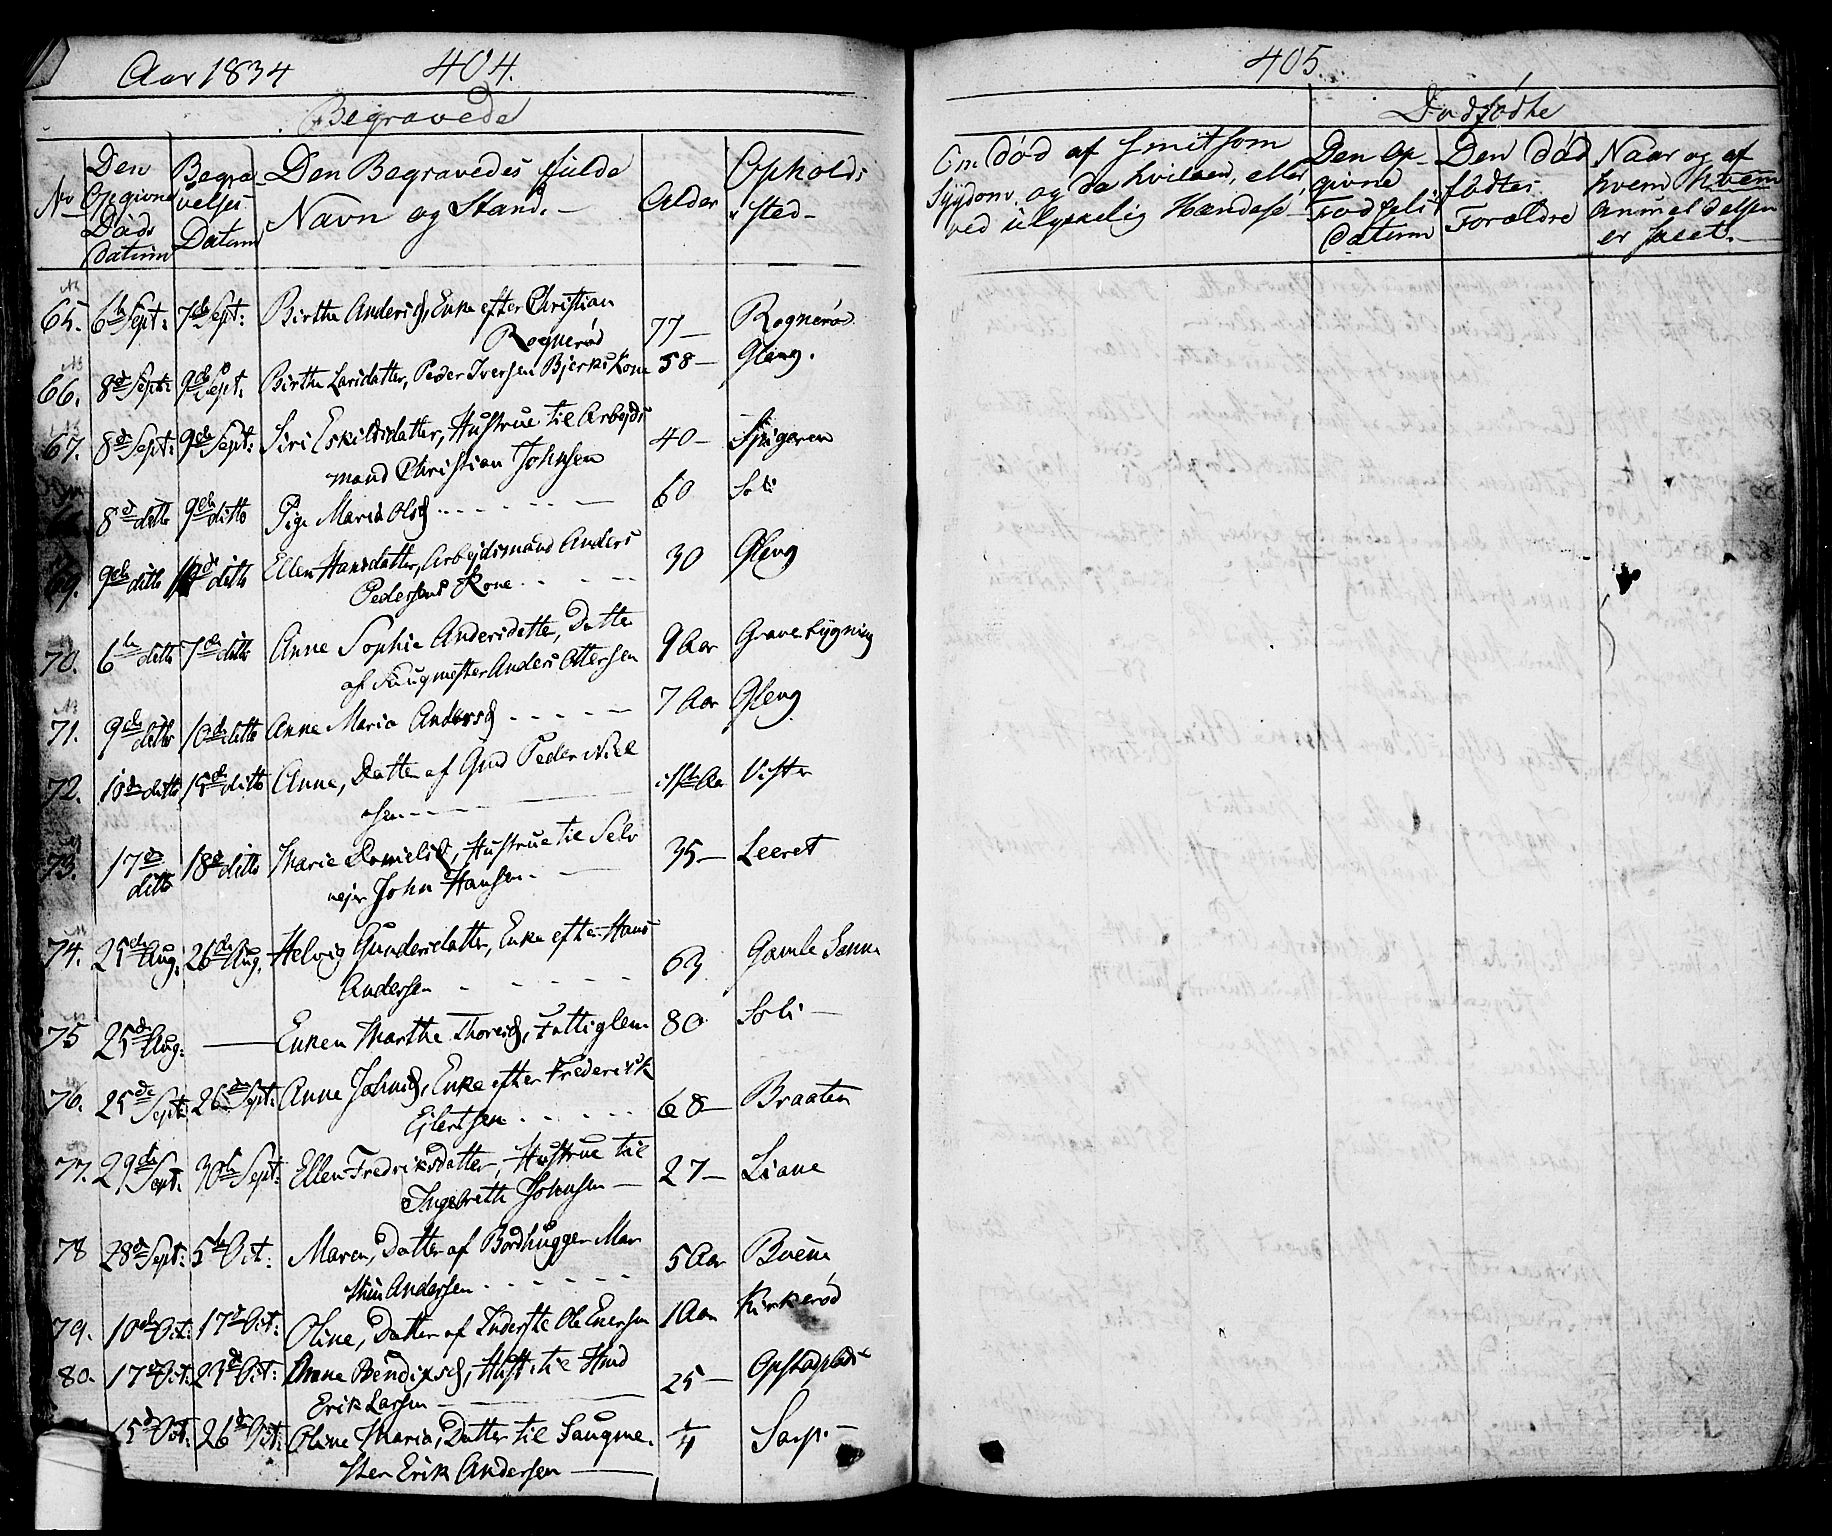 Aar 1834 404.
Begravede
No
Den Opgivne Døds Datum
Begravelses Datum
Den Begravedes fulde Navn og Stand. -
Alder
Opholds Sted -
65. 6te Sept: 7de Sept: Birthe Andersd, Enke efter Christian
Rognerød 77 - Rognerød
66. 8de Sept: 9de Sept. Birthe Larsdatter, Peder Iversen Bjerks Kone 58 - Gleng.
67. 8de Sept: 9de Sept: Siri Eskildsdatter, Hustrue til Arbejds
mand Christian Johnsen 40 - Spigeren
8de ditto 9de ditto Pige Maria Olsd 60 Soli
69. 9de ditto 10de ditto Ellen Hansdatter, Arbejdsmand Anders
Pedersens Kone 30 Gleng
70. 6te ditto 7de ditto Anne Sophie Andersdatter, Datter
af Saugmester Anders Ottersen 9 Aar Gravebygning
71. 9de ditto 10de ditto Anne Maria Andersd 7 Aar Gleng
72. 10de ditto 15de ditto Anne, Datter af Gmd Peder Niel
sen Vister
73. 17de ditto 18de ditto Marie Danielsd, Hustrue til Selv
ejer John Hansen. 35 - Leeret
74. 25de Aug: 26de Aug. Helvig Gundersdatter, Enke efter Hans
Andersen 63 Gamle Sanne
75 25de Aug: — Enken Marthe Thoresd, Fattiglem 80 Soli -
76. 25de Sept: 26de Sept: Anne Johnsd, Enke efter Frederick
Ejlertsen 68 - Braaten
77. 29de Sept. 30te Sept: Ellen Fredriksdatter, Hustrue til
Ingebreth Johnsen - 27 - Liane
78 28de Sept: 5te Oct: Maren, Datter af Bordhugger Mar
thin Andersen 5 Aar Boene
79. 10de Oct: 17de Oct: Oline, Datter af Inderste Ole Enersen 1 Aar Kirkerød
80. 17de Oct: 23de Oct: Anne Bendixsd, Hust: til Hmd
Erik Larsen - 25 - Opstadplads
15de Oct: 26de Oct: Oline Maria, Datter til Saugme-
ster Erik Andersen 1/4 Sarp. -
405.
Dødfødte
Om død af smitsom
Sygdom og da hvilken, eller
ved ulykkelig Hændelse -
Den Opgivne Fødsels Datum
Den Død fødtes Forældre
Naar og af hvem hvem Anmeldelsen er skeet. -